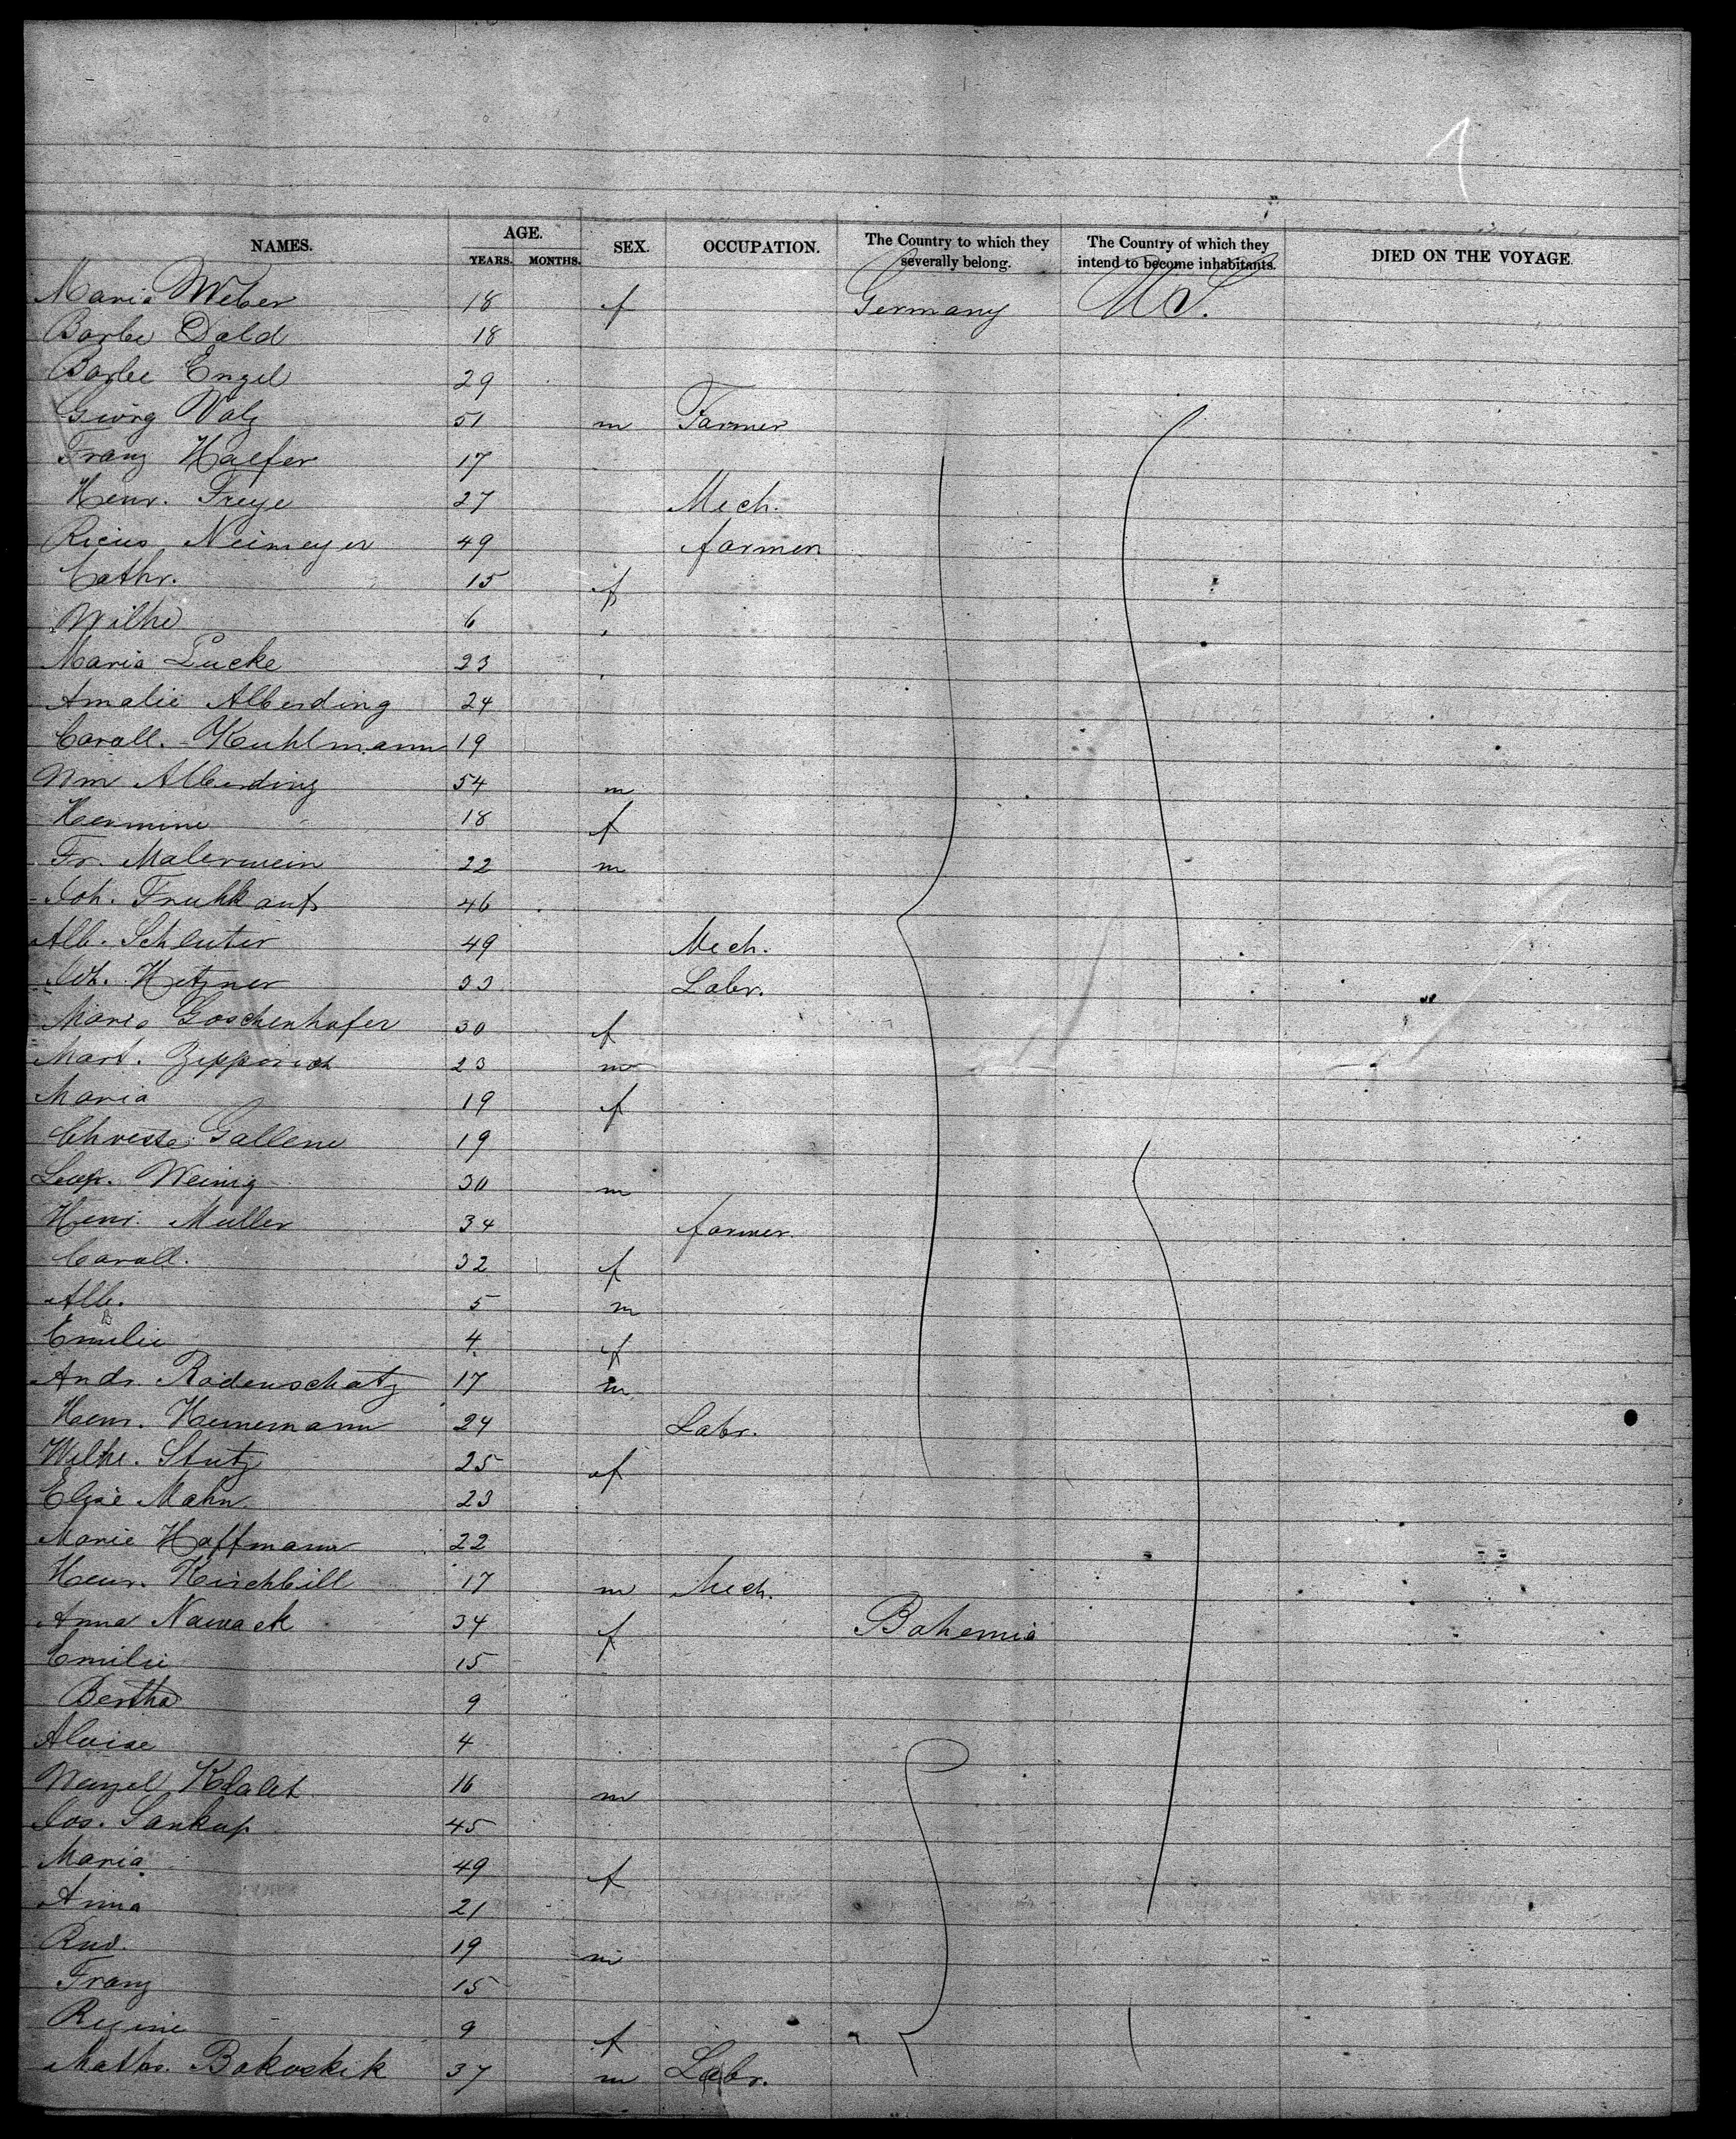 1
NAMES. AGE. YEARS. MONTHS. SEX. OCCUPATION. The Country to which they severally belong. The Country of which they intend to become inhabitants. DIED ON THE VOYAGE.
Maria Weber 18 f Germany U S.
Barbe Dold 18
Barbe Engel 29
Georg Volz 51 m Farmer
Franz Haefer 17
Henr. Freye 27 Mech.
Neimeyer 49 farmer
Cathr. 15 f
Wilhe 6
Maria Lucke 23
Amalie Alberding 24
Caroll. Kuhlmann 19
Wm Alberding 54 m
Hermine 18 f
Fr. Malerwein 22 m
Joh. Fruhkauf 46
Alb. Schluter 49 Mech.
Joh. Hetzner 33 Labr.
Maria Goschenhofer 30 f
Mart. Zipperich 23 m
Maria 19 f
Christe Gallene 19
Leop. Weinig 30 m
Henr. Muller 34 farmer
Caroll. 32 f
Alb. 5 m
Emilie 4 f
Andr. Rodenschatz 17 m
Henr. Heinemann 24 Labr.
Wilhe. Stutz 25 f
Elise Mahn 23
Marie Hoffmann 22
Henr. Kirchbill 17 m Mech.
Anna Nawack 34 f Bohemia
Emilie 15
Bertha 9
Aloise 4
Wenzel 16 m
Jos. Sankup 45
Maria 49 f
Anna 21
Rud. 19 m
Franz 15
Regine 9 f
Maths. Bokoskik 37 m Labr.